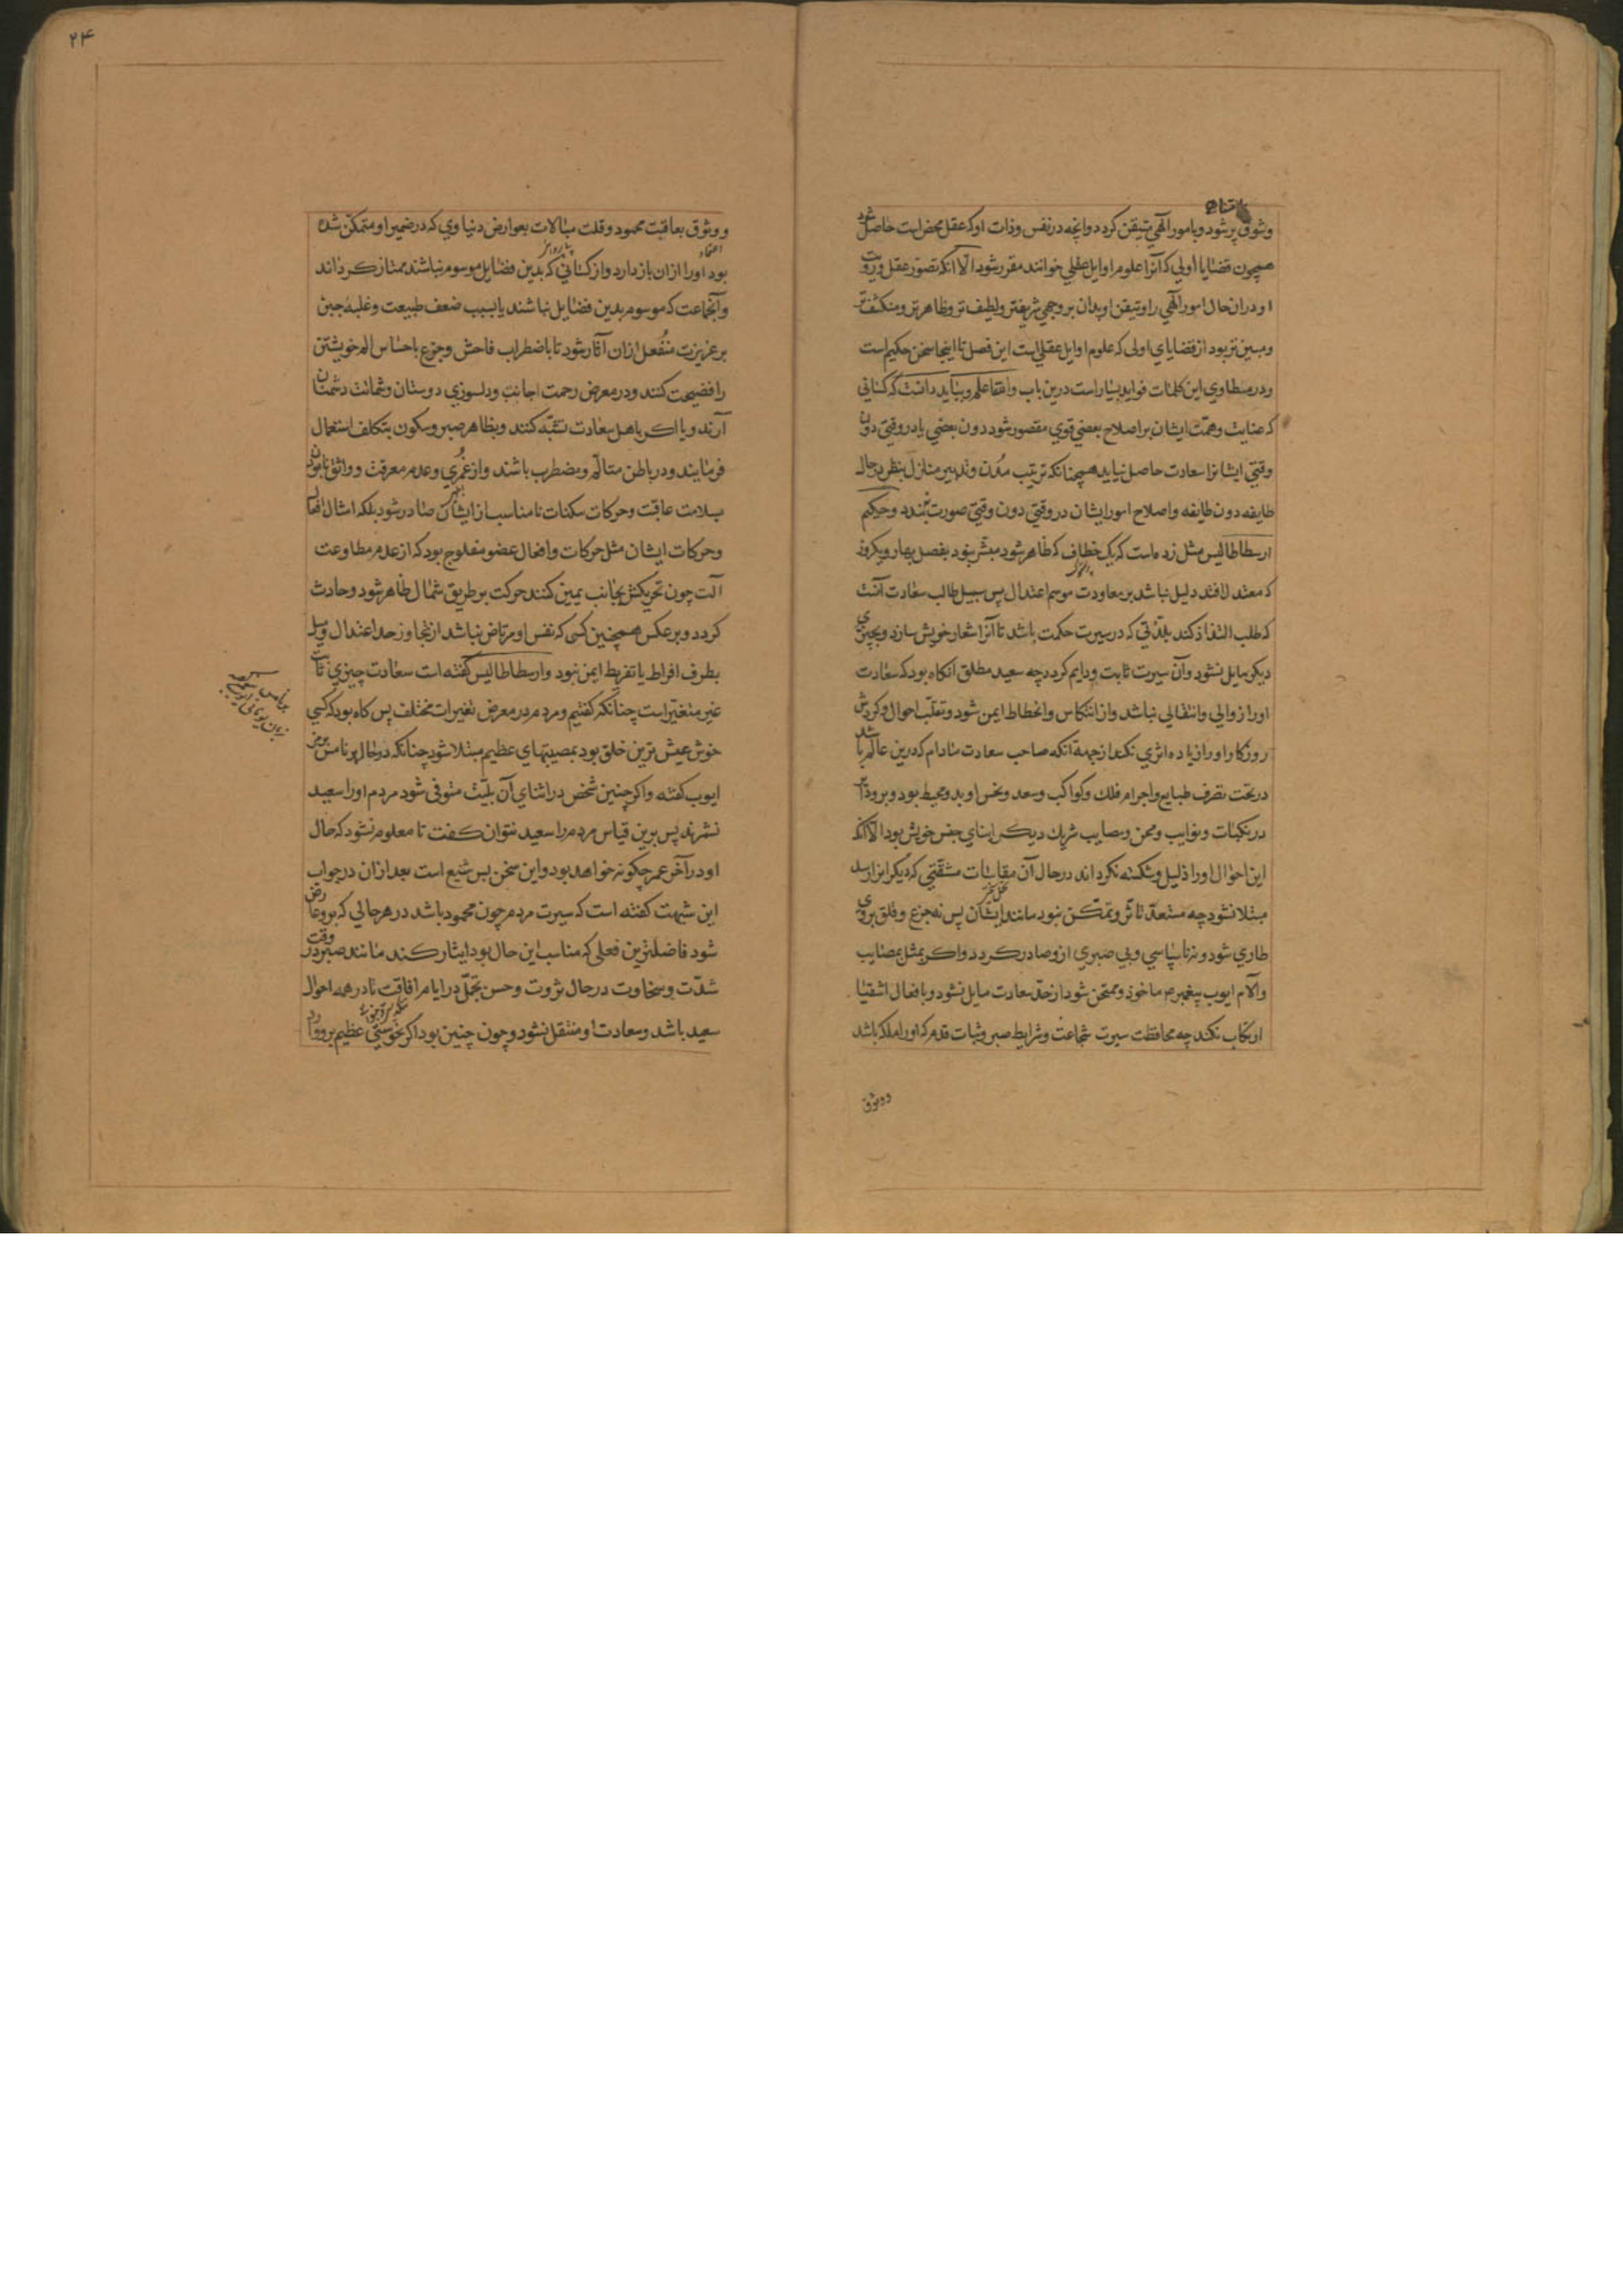 وثوق پر شود و بامور الهی متیقن کردد و انچه در نفس و ذات او که عقل محض است حاصل شود
همچون قضایا اولی که آنرا علوم اوایل عقلی خوانند مقرر شود الا آنکه تصور عقل و رویت
او دران حال امور الهی را و تیقن او بدان بر وجهی شریفتر و لطیف تر و ظاهر تر و منکشف تر
و مبین تر بود از قضایای اولی که علوم اوایل عقلی است این فصل تا اینجا سخن حکیم است
و در مطاوی این کلمات فواید بسیار است درین باب و بباید دانست که کسانی
که عنایت و همت ایشان بر اصلاح بعضی قوی مقصور شود دون بعضی یا در وقتی دون
وقتی ایشانرا سعادت حاصل نیاید همچنانکه ترتیب مُدن و تدبیر منازل بنظر در حال
طایفه دون طایفه و اصلاح امور ایشان در وقتی دون وقتی صورت نبندد و حکیم
ارسطاطالیس مثل زده است که یک خطاف که ظاهر شود مبشر نبود بفصل بهار و یکروز
که معتدل افتد دلیل نباشد بر معاودت موسم اعتدال پس سبیل طالب سعادت آنست
که طلب التذاذ کند بلذتی که در سیرت حکمت باشد تا آنرا شعار خویش سازد و بچیزی
دیکر مایل نشود و آن سیرت ثابت و دایم کردد چه سعید مطلق آنکاه بود که سعادت
او را زوالی و انتقالی نباشد و از انتکاس و انحطاط ایمن شود و تقلب احوال و کردش
روزکار او را زیاده اثری نکند از جهة آنکه صاحب سعادت مادام که درین عالم باشد
در تحت تصرف طبایع و اجرام فلک و کواکب و سعد و نحس او بدو محیط بود و برو دایر
در نکبات و نوایب و محن و مصایب شریک دیکر ابنای جنس خویش بود الا آنکه
این احوال او را ذلیل و شکسته نکرداند در حال آن مقاسات مشقتی که دیکرانرا رسد
مبتلا نشود چه مستعد تاثر و تمکن نبود مانند ایشان پس نه جزع و قلق بروی
طاری شود و نه ناسپاسی و بی صبری ازو صادر کردد و اکر بمثل بمصایب
و آلام ایوب پیغمبر ع ماخوذ و ممتحن شود از حد سعادت مایل نشود و بافعال اشقیا
ارتکاب نکند چه محافظت سیرت شجاعت و شرایط صبر و ثبات قدم که او را ملکه باشد
و وثوق
۲۴
و وثوق بعاقبت محمود و قلت مبالات بعوارض دنیاوی که در ضمیر او متمکن شده
بود او را ازان باز دارد و از کسانی که بدین فضایل موسوم نباشند ممتاز کرداند
و آنجماعت که موسوم بدین فضایل نباشند یا بسبب ضعف طبیعت و غلبهٔ جبن
بر غریزت منفعل ازان آثار شود تا باضطراب فاحش و جزع باحساس الم خویشتن
را فضیحت کنند و در معرض رحمت اجانب و دلسوزی دوستان و شماتت دشمنان
آرند و یا اکر باهل سعادت تشبّه کنند و بظاهر صبر و سکون بتکلف استعمال
فرمایند و در باطن متالّم و مضطرب باشند و از غمری و عدم معرفت و واثق نابودن
بسلامت عاقبت و حرکات سکنات نامناسب از ایشان صادر شود بلکه امثال افعال
و حرکات ایشان مثل حرکات و افعال عضو مفلوج بود که از عدم مطاوعت
آلت چون تحریکش بجانب یمین کنند حرکت بر طریق شمال ظاهر شود و حادث
کردد و بر عکس همچنین کسی که نفس او مرتاض نباشد از تجاوز حد اعتدال و میل
بطرف افراط یا تفریط ایمن نبود و ارسطاطالیس گفته است سعادت چیزی ثابت
غیر متغیر است چنانکه گفتیم و مردم در معرض تغیرات مختلف پس کاه بود که کسی
خوش عیش ترین خلق بود بمصیبتهای عظیم مبتلا شود چنانکه در حال برنامس
ایوب کفته و اکر چنین شخص در اثنای آن بلیّت متوفی شود مردم او را سعید
نشمرند پس برین قیاس مردم را سعید نتوان کفت تا معلوم نشود که حال
او در آخر عمر چکونه خواهد بود و این سخن بس شنیع است بعد ازان در جواب
این شبهت کفته است که سیرت مردم چون محمود باشد در هر حالی که برو عارض
شود فاضلترین فعلی که مناسب این حال بود ایثار کند مانند صبر در وقت
شدّت و سخاوت در حال ثروت و حسن تجمّل در ایام فاقت تا در همه احوال
سعید باشد و سعادت او منتقل نشود و چون چنین بود اکر نحوستی عظیم برو وارد